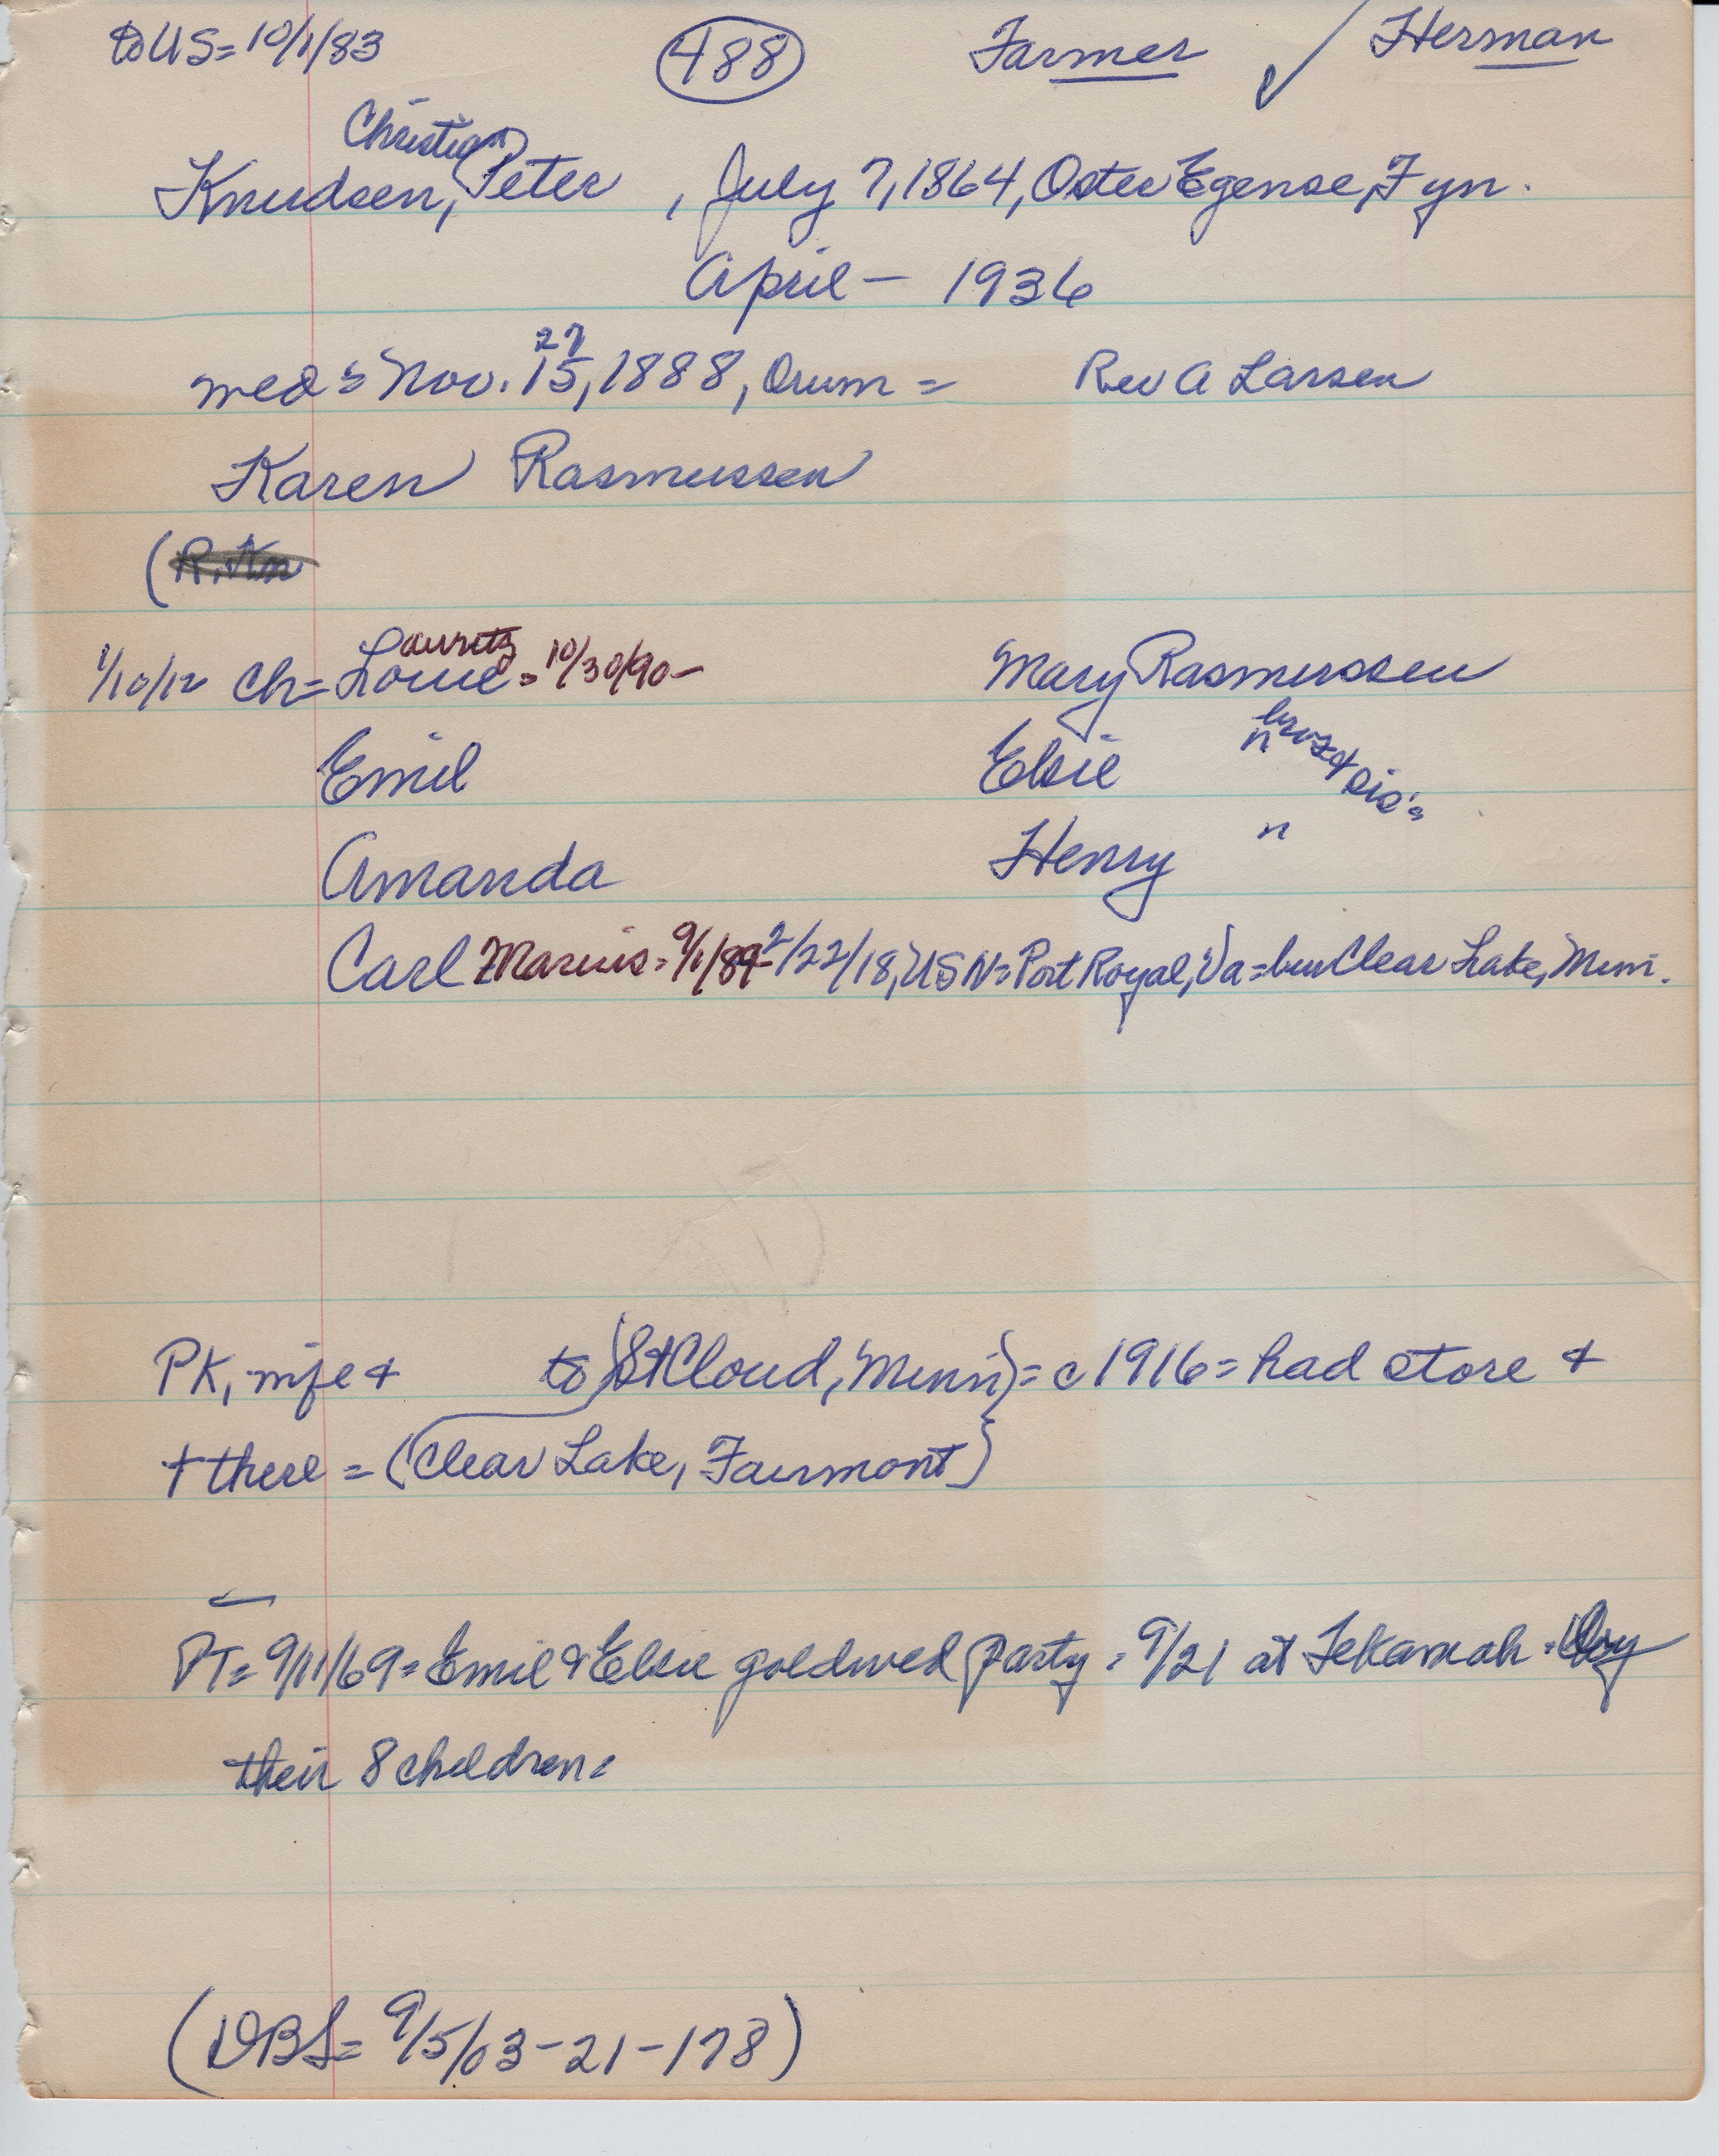 to US= 10/1/83 488 Farmer ✓ Herman
Christian
Knudsen, Peter , July 7, 1864, Oster Egense, Fyn.
April - 1936
27
med = Nov. 15, 1888, Orum = Rev A Larsen
Karen Rasmussen
(R. Kn
auritz
1/10/12 Ch= Louie = 10/30/90- Mary Rasmussen
Emil Elsie " bros & sis's
Amanda Henry "
Carl Marius = 9/1/89- 2/22/18, USN= Port Royal, Va = bur Clear Lake, Minn.
PK, wife & to (St Cloud, Minn) = c 1916 = had store &
+ there = (Clear Lake, Fairmont)
PT= 9/11/69= Emil & Elsie goldwed party = 9/21 at Tekamah = by
their 8 children=
(DBL= 9/5/03-21-178)